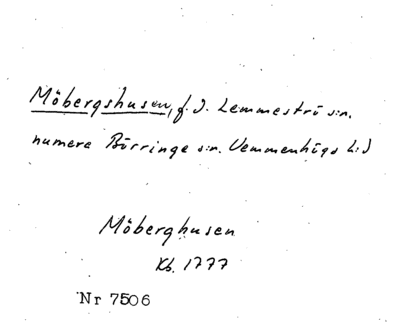 Möbergshusen, f.d. Lemmeströ s:n.
numera Börringe s:n. Vemmenhögs h:d
Möberghusen
Kb. 1777
Nr 7506